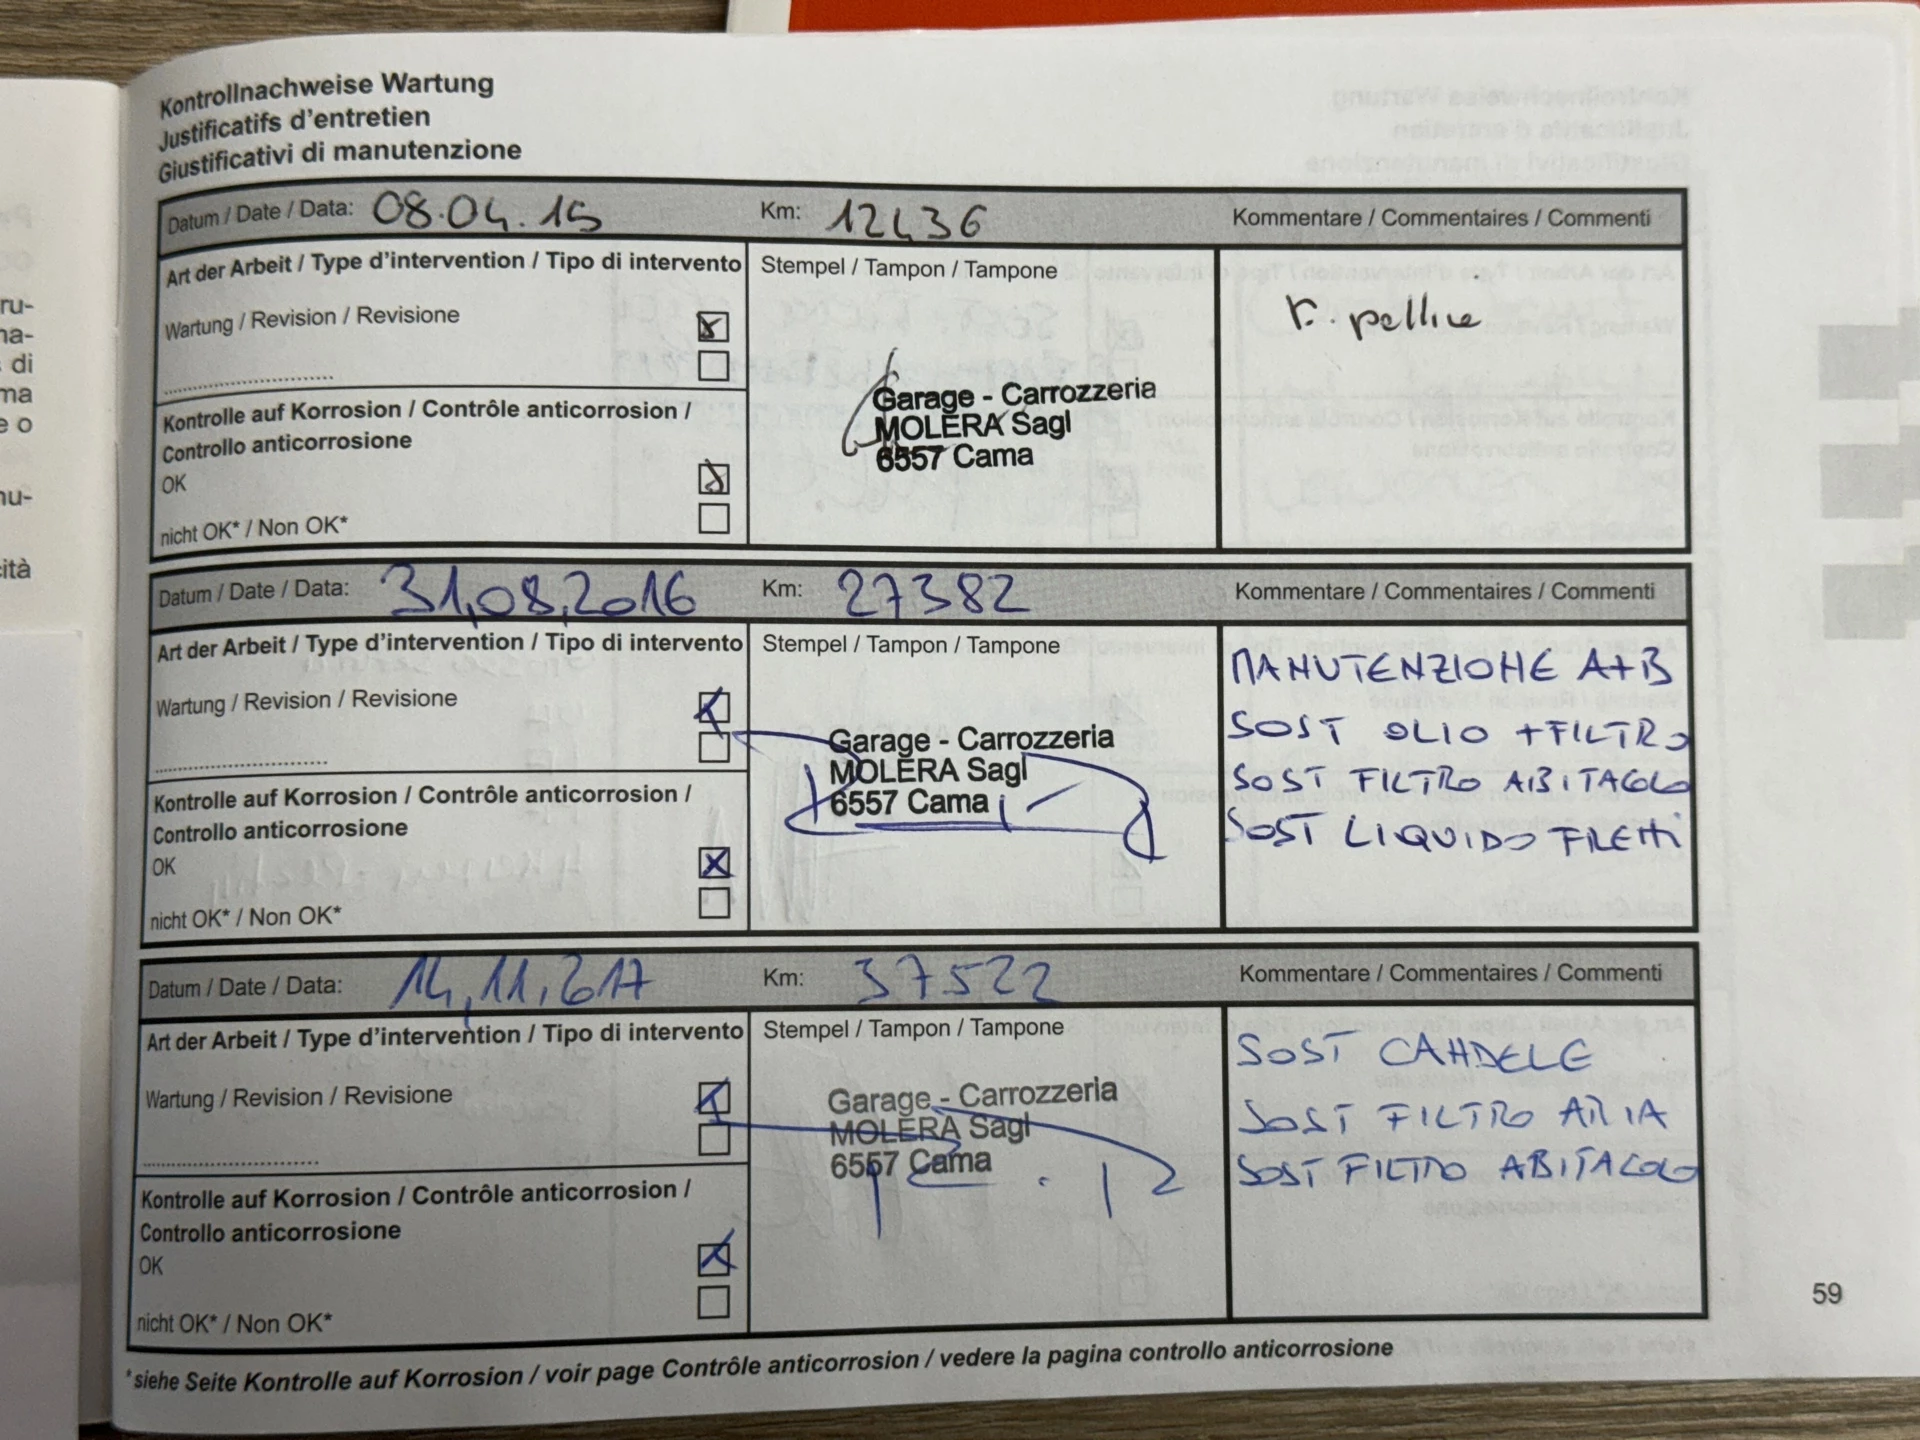 Kontrollnachweise Wartung
Justificatifs d'entretien
Giustificativi di manutenzione
Datum / Date / Data: 08.04.15 Km: 12436 Kommentare / Commentaires / Commenti
Art der Arbeit / Type d'intervention / Tipo di intervento
Stempel / Tampon / Tampone
Wartung / Revision / Revisione
Kontrolle auf Korrosion / Contrôle anticorrosion /
Controllo anticorrosione
OK
nicht OK* / Non OK*
Garage - Carrozzeria
MOLERA Sagl
6557 Cama
Datum / Date / Data: 31,08,2016 Km: 27382 Kommentare / Commentaires / Commenti
Art der Arbeit / Type d'intervention / Tipo di intervento
Stempel / Tampon / Tampone
Wartung / Revision / Revisione
Kontrolle auf Korrosion / Contrôle anticorrosion /
Controllo anticorrosione
OK
nicht OK* / Non OK*
Garage - Carrozzeria
MOLERA Sagl
6557 Cama
MANUTENZIONE A+B
SOST OLIO +FILTRO
SOST FILTRO ABITACOLO
SOST LIQUIDO FRENI
Datum / Date / Data: 14,11,2017 Km: 37522 Kommentare / Commentaires / Commenti
Art der Arbeit / Type d'intervention / Tipo di intervento
Stempel / Tampon / Tampone
Wartung / Revision / Revisione
Kontrolle auf Korrosion / Contrôle anticorrosion /
Controllo anticorrosione
OK
nicht OK* / Non OK*
Garage - Carrozzeria
MOLERA Sagl
6557 Cama
SOST CANDELE
SOST FILTRO ARIA
SOST FILTRO ABITACOLO
*siehe Seite Kontrolle auf Korrosion / voir page Contrôle anticorrosion / vedere la pagina controllo anticorrosione
59